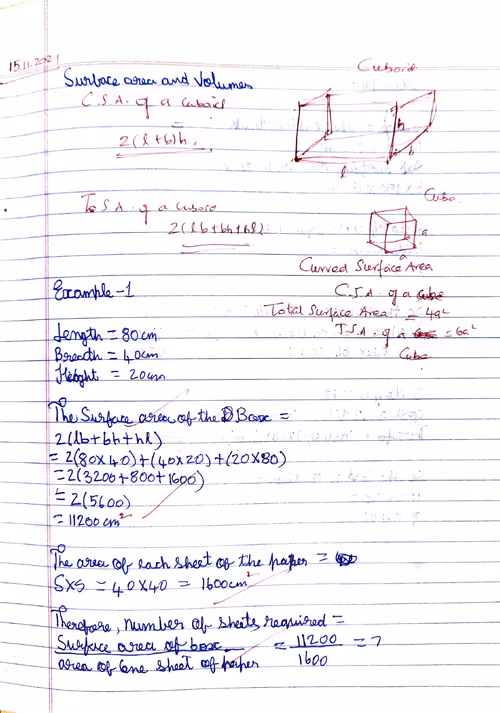 15.11.2021
Surface area and Volumes
Cuboid
C.S.A. of a cuboid
=
2(l+b)h.
h
l
b
T.S.A. of a cuboid
2(lb+bh+hl)
Cube
a
a
Curved Surface Area
C.S.A of a cube
= 4a²
Total Surface Area
T.S.A. of a = 6a²
Cube
Example-1
Length = 80cm
Breadth = 40cm
Height = 20cm
The Surface area of the Box =
2(lb+bh+hl)
= 2(80×40)+(40×20)+(20×80)
= 2(3200+800+1600)
= 2(5600)
= 11200cm²
The area of each sheet of the paper =
S×S = 40×40 = 1600cm²
Therefore, number of sheets required =
Surface area of box = 11200 = 7
area of one sheet of paper 1600